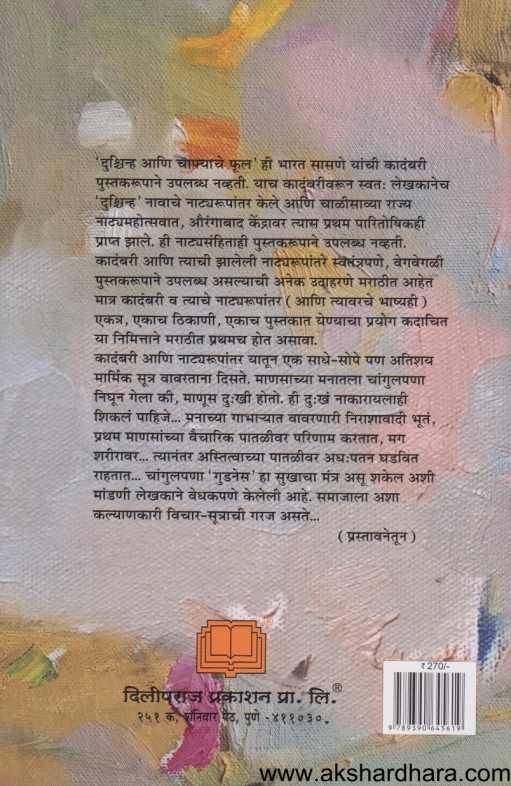 'दुश्चिन्ह आणि चाफ्याचे फूल' ही भारत सासणे यांची कादंबरी
पुस्तकरूपाने उपलब्ध नव्हती. याच कादंबरीवरून स्वतः लेखकानेच
'दुश्चिन्ह' नावाचे नाट्यरूपांतर केले आणि चाळीसाव्या राज्य
नाट्यमहोत्सवात, औरंगाबाद केंद्रावर त्यास प्रथम पारितोषिकही
प्राप्त झाले. ही नाट्यसंहिताही पुस्तकरूपाने उपलब्ध नव्हती.
कादंबरी आणि त्याची झालेली नाट्यरूपांतरे स्वतंत्रपणे, वेगवेगळी
पुस्तकरूपाने उपलब्ध असल्याची अनेक उदाहरणे मराठीत आहेत
मात्र कादंबरी व त्याचे नाट्यरूपांतर ( आणि त्यावरचे भाष्यही )
एकत्र, एकाच ठिकाणी, एकाच पुस्तकात येण्याचा प्रयोग कदाचित
या निमित्ताने मराठीत प्रथमच होत असावा.
कादंबरी आणि नाट्यरूपांतर यातून एक साधे-सोपे पण अतिशय
मार्मिक सूत्र वावरताना दिसते. माणसाच्या मनातला चांगुलपणा
निघून गेला की, माणूस दुःखी होतो. ही दुःखं नाकारायलाही
शिकलं पाहिजे... मनाच्या गाभाऱ्यात वावरणारी निराशावादी भूतं,
प्रथम माणसांच्या वैचारिक पातळीवर परिणाम करतात, मग
शरीरावर... त्यानंतर अस्तित्वाच्या पातळीवर अधःपतन घडवित
राहतात... चांगुलपणा 'गुडनेस' हा सुखाचा मंत्र असू शकेल अशी
मांडणी लेखकाने वेधकपणे केलेली आहे. समाजाला अशा
कल्याणकारी विचार-सूत्राची गरज असते...
( प्रस्तावनेतून )
दिलीपराज प्रकाशन प्रा. लि.®
२५१ क, शनिवार पेठ, पुणे -४११०३०.
₹ 270/-
9 789390 645619
www.akshardhara.com